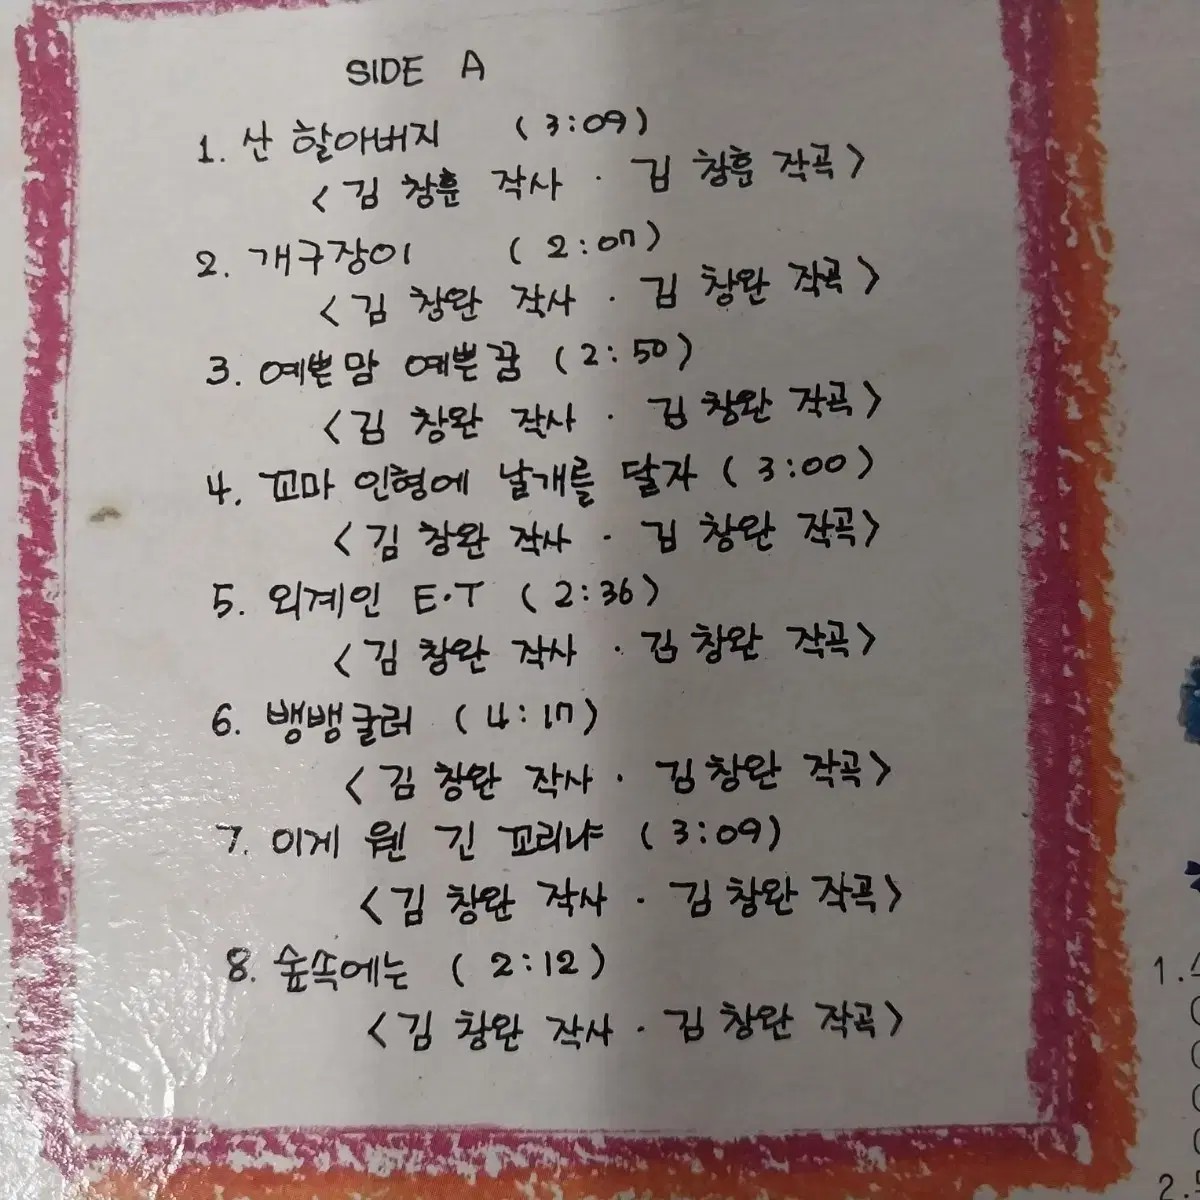 SIDE A
1. 산 할아버지 (3:09)
<김 창훈 작사 · 김 창훈 작곡>
2. 개구장이 (2:07)
<김 창완 작사 · 김 창완 작곡>
3. 예쁜맘 예쁜꿈 (2:50)
<김 창완 작사 · 김 창완 작곡>
4. 꼬마 인형에 날개를 달자 (3:00)
<김 창완 작사 · 김 창완 작곡>
5. 외계인 E·T (2:36)
<김 창완 작사 · 김 창완 작곡>
6. 뱅뱅굴러 (4:17)
<김 창완 작사 · 김 창완 작곡>
7. 이게 웬 긴 꼬리냐 (3:09)
<김 창완 작사 · 김 창완 작곡>
8. 숲속에는 (2:12)
<김 창완 작사 · 김 창완 작곡>
1.
2.